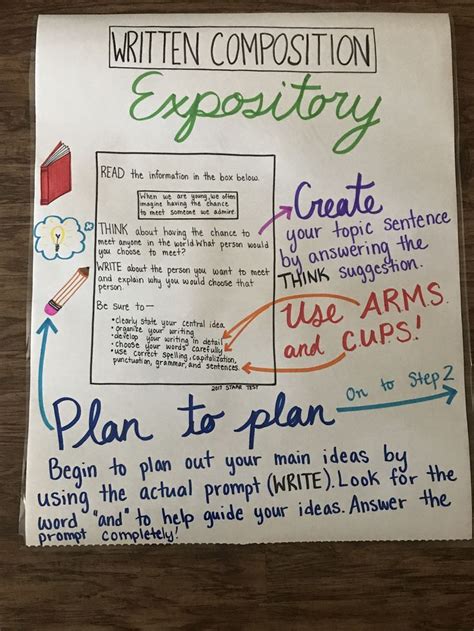 WRITTEN COMPOSITION
Expository
READ the information in the box below.
When we are young, we often
imagine having the chance
to meet someone we admire
THINK about having the chance to
meet anyone in the world. What person would
you choose to meet?
WRITE about the person you want to meet
and explain why you would choose that
person.
Be sure to—
•clearly state your central idea
•organize your writing
•develop your writing in detail
•choose your words carefully
•use correct spelling, capitalization,
punctuation, grammar, and sentences.
2017 STAAR TEST
Create
your topic sentence
by answering the
THINK suggestion.
Use ARMS
and CUPS!
Plan to plan
On to Step 2
Begin to plan out your main ideas by
using the actual prompt (WRITE). Look for the
word "and" to help guide your ideas. Answer the
prompt completely!